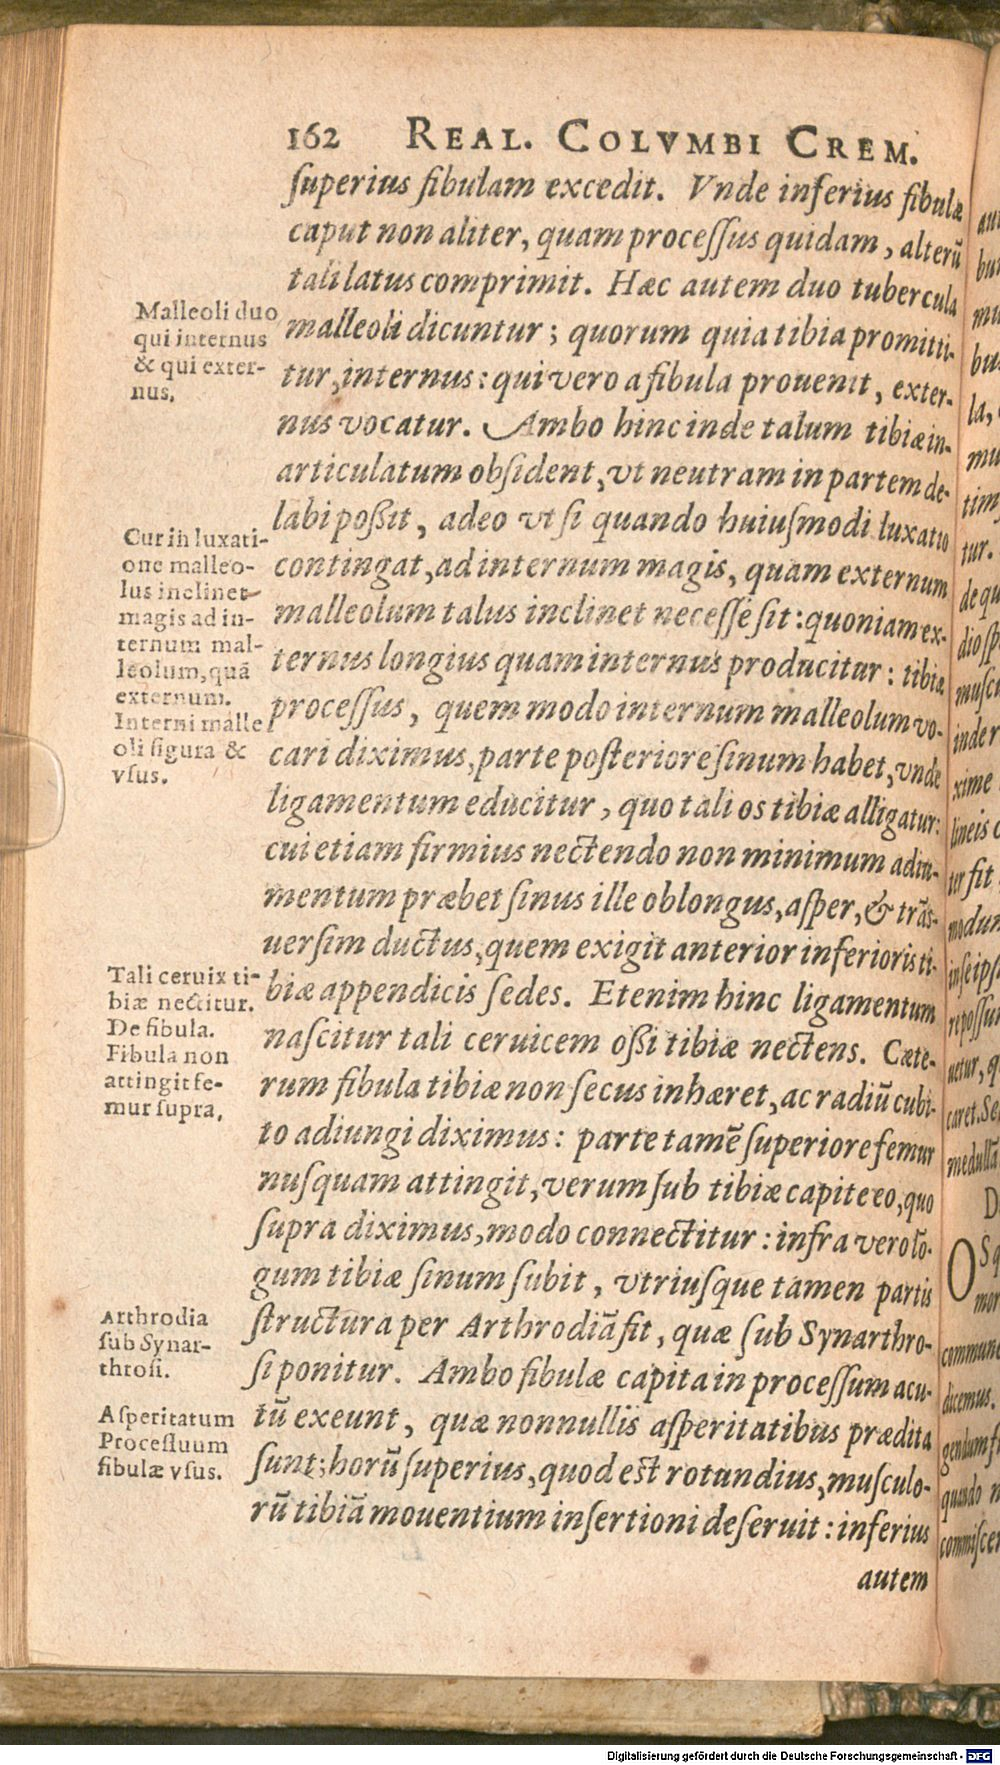 162 REAL. COLVMBI CREM.
ſuperius fibulam excedit. Vnde inferius fibulæ
caput non aliter, quam proceſſus quidam, alterũ
tali latus comprimit. Hæc autem duo tubercula
malleoli dicuntur; quorum quia tibia promitti-
tur, internus: qui vero a fibula prouenit, exter-
nus vocatur. Ambo hinc inde talum tibiæ in-
articulatum obſident, vt neutram in partem de-
labi poßit, adeo vt ſi quando huiuſmodi luxatio
contingat, ad internum magis, quam externum
malleolum talus inclinet neceſſe ſit: quoniam ex-
ternus longius quam internus producitur: tibiæ
proceſſus, quem modo internum malleolum vo-
cari diximus, parte poſteriore ſinum habet, vnde
ligamentum educitur, quo tali os tibiæ alligatur:
cui etiam firmius nectendo non minimum adiu-
mentum præbet ſinus ille oblongus, aſper, & trãſ-
uerſim ductus, quem exigit anterior inferioris ti-
biæ appendicis ſedes. Etenim hinc ligamentum
naſcitur tali ceruicem oßi tibiæ nectens. Cæte-
rum fibula tibiæ non ſecus inhæret, ac radiũ cubi-
to adiungi diximus: parte tamẽ ſuperiore femur
nuſquam attingit, verum ſub tibiæ capite eo, quo
ſupra diximus, modo connectitur: infra vero lõ-
gum tibiæ ſinum ſubit, vtriuſque tamen partis
ſtructura per Arthrodiã fit, quæ ſub Synarthro-
ſi ponitur. Ambo fibulæ capita in proceſſum acu-
tũ exeunt, quæ nonnullis aſperitatibus prædita
ſunt; horũ ſuperius, quod eſt rotundius, muſculo-
rũ tibiã mouentium inſertioni deſeruit: inferius
autem
Malleoli duo
qui internus
& qui exter-
nus.
Cur in luxati-
one malleo-
lus inclinet
magis ad in-
ternum mal-
leolum, quã
externum.
Interni malle
oli figura &
vſus.
Tali ceruix ti-
biæ nectitur.
De fibula.
Fibula non
attingit fe-
mur ſupra,
Arthrodia
ſub Synar-
throſi.
Aſperitatum
Proceſſuum
fibulæ vſus.
bu
mu
bu
la,
mu
tim
tur.
de qu
dio ſp
muſcu
inder
xime
lineis
ter fit
modum
in ſe ipſa
caret. Se
medullã
communi
dicemus.
quando
commiſcer
Digitalisierung gefördert durch die Deutsche Forschungsgemeinschaft - DFG